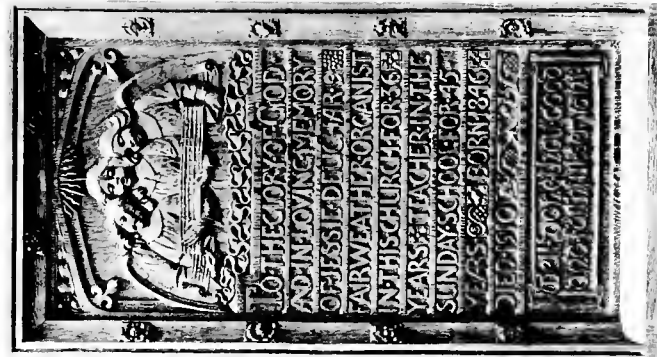 TO·THE·GLORY·OF·GOD
AND·IN·LOVING·MEMORY
OF·JESSIE·DEUCHAR
FAIRWEATHER·ORGANIST
IN·THIS·CHURCH·FOR·36
YEARS·&·TEACHER·IN·THE
SUNDAY·SCHOOL·FOR·45
YEARS BORN·1846
DIED